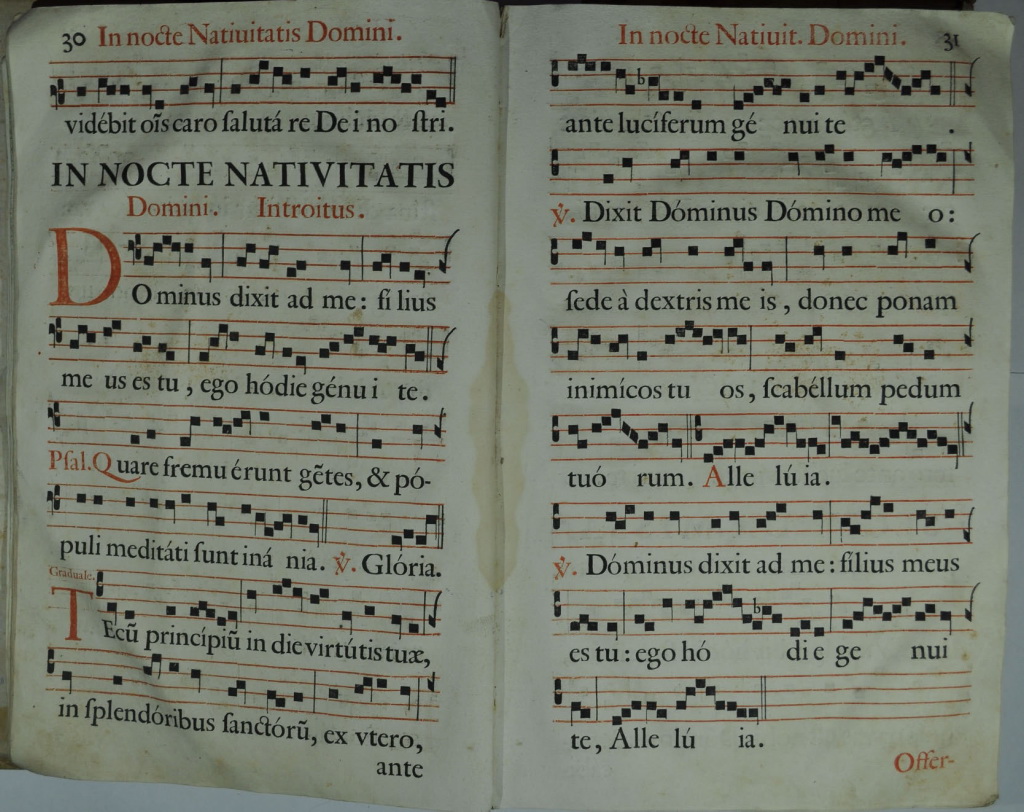 30 In nocte Natiuitatis Domini.
vidébit oĩs caro ſalutá re De i no ſtri.
IN NOCTE NATIVITATIS
Domini. Introitus.
DOminus dixit ad me: fí lius
me us es tu , ego hódie génu i te.
Pſal. Quare fremu érunt gẽtes, & pó-
puli meditáti ſunt iná nia. ℣. Glória.
Graduale.
TEcũ princípiũ in die virtútis tuæ,
in ſplendóribus ſanctórũ, ex vtero,
ante
In nocte Natiuit. Domini. 31
ante lucíferum gé nui te .
℣. Dixit Dóminus Dómino me o:
ſede à dextris me is , donec ponam
inimícos tu os, ſcabéllum pedum
tuó rum. Alle lú ia.
℣. Dóminus dixit ad me: fílius meus
es tu : ego hó di e ge nui
te, Alle lú ia.
Offer-